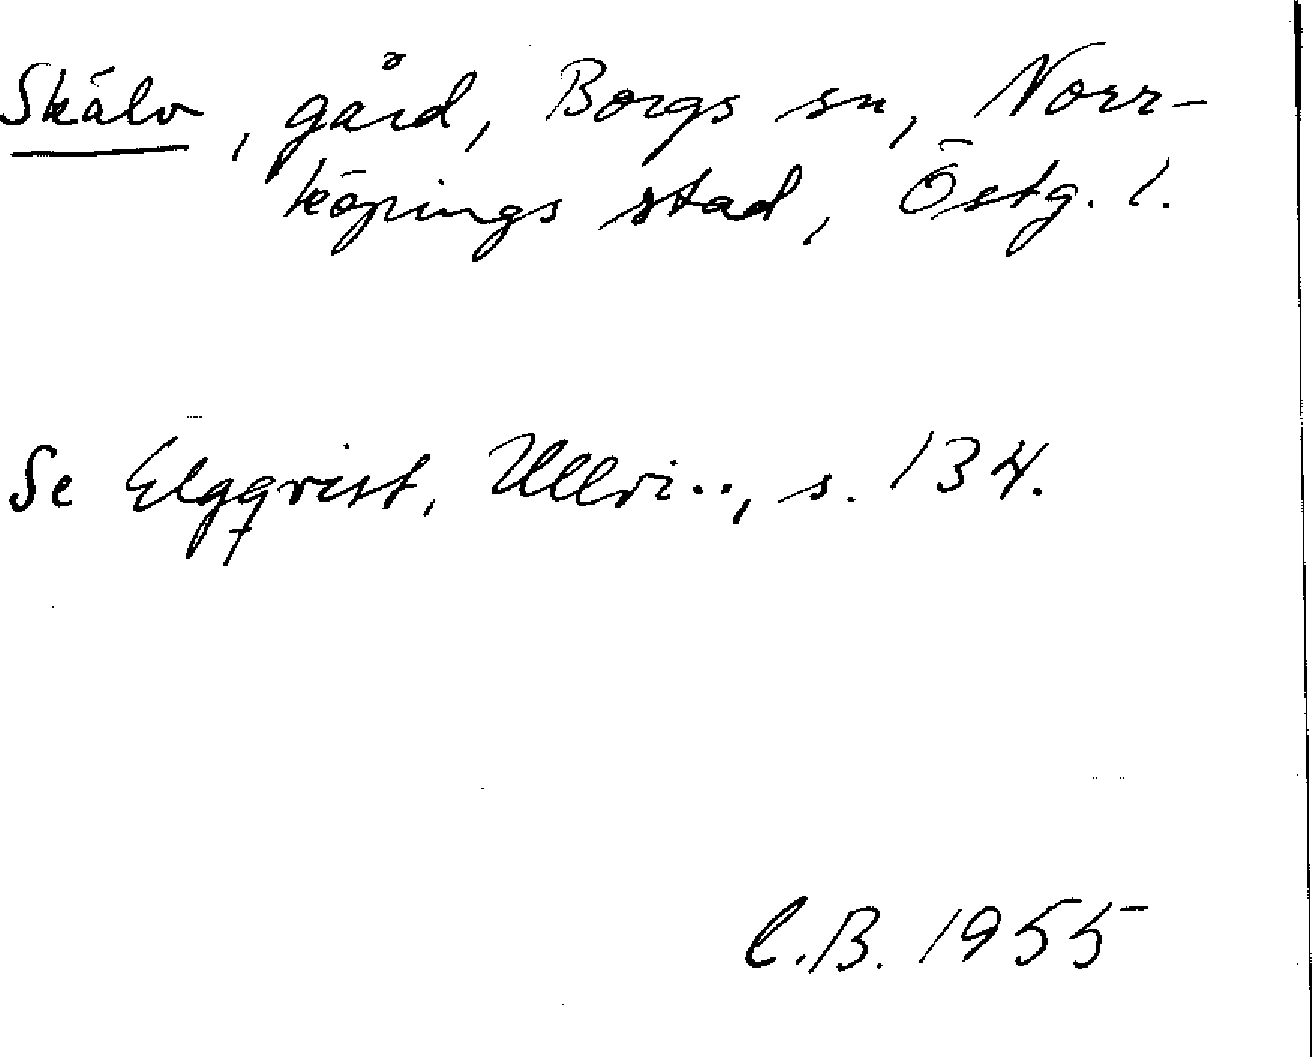 Skälv, gård, Borgs sn, Norr-
köpings stad, Östg. l.
Se Elgqvist, Ullvi.., s. 134.
C.B. 1955